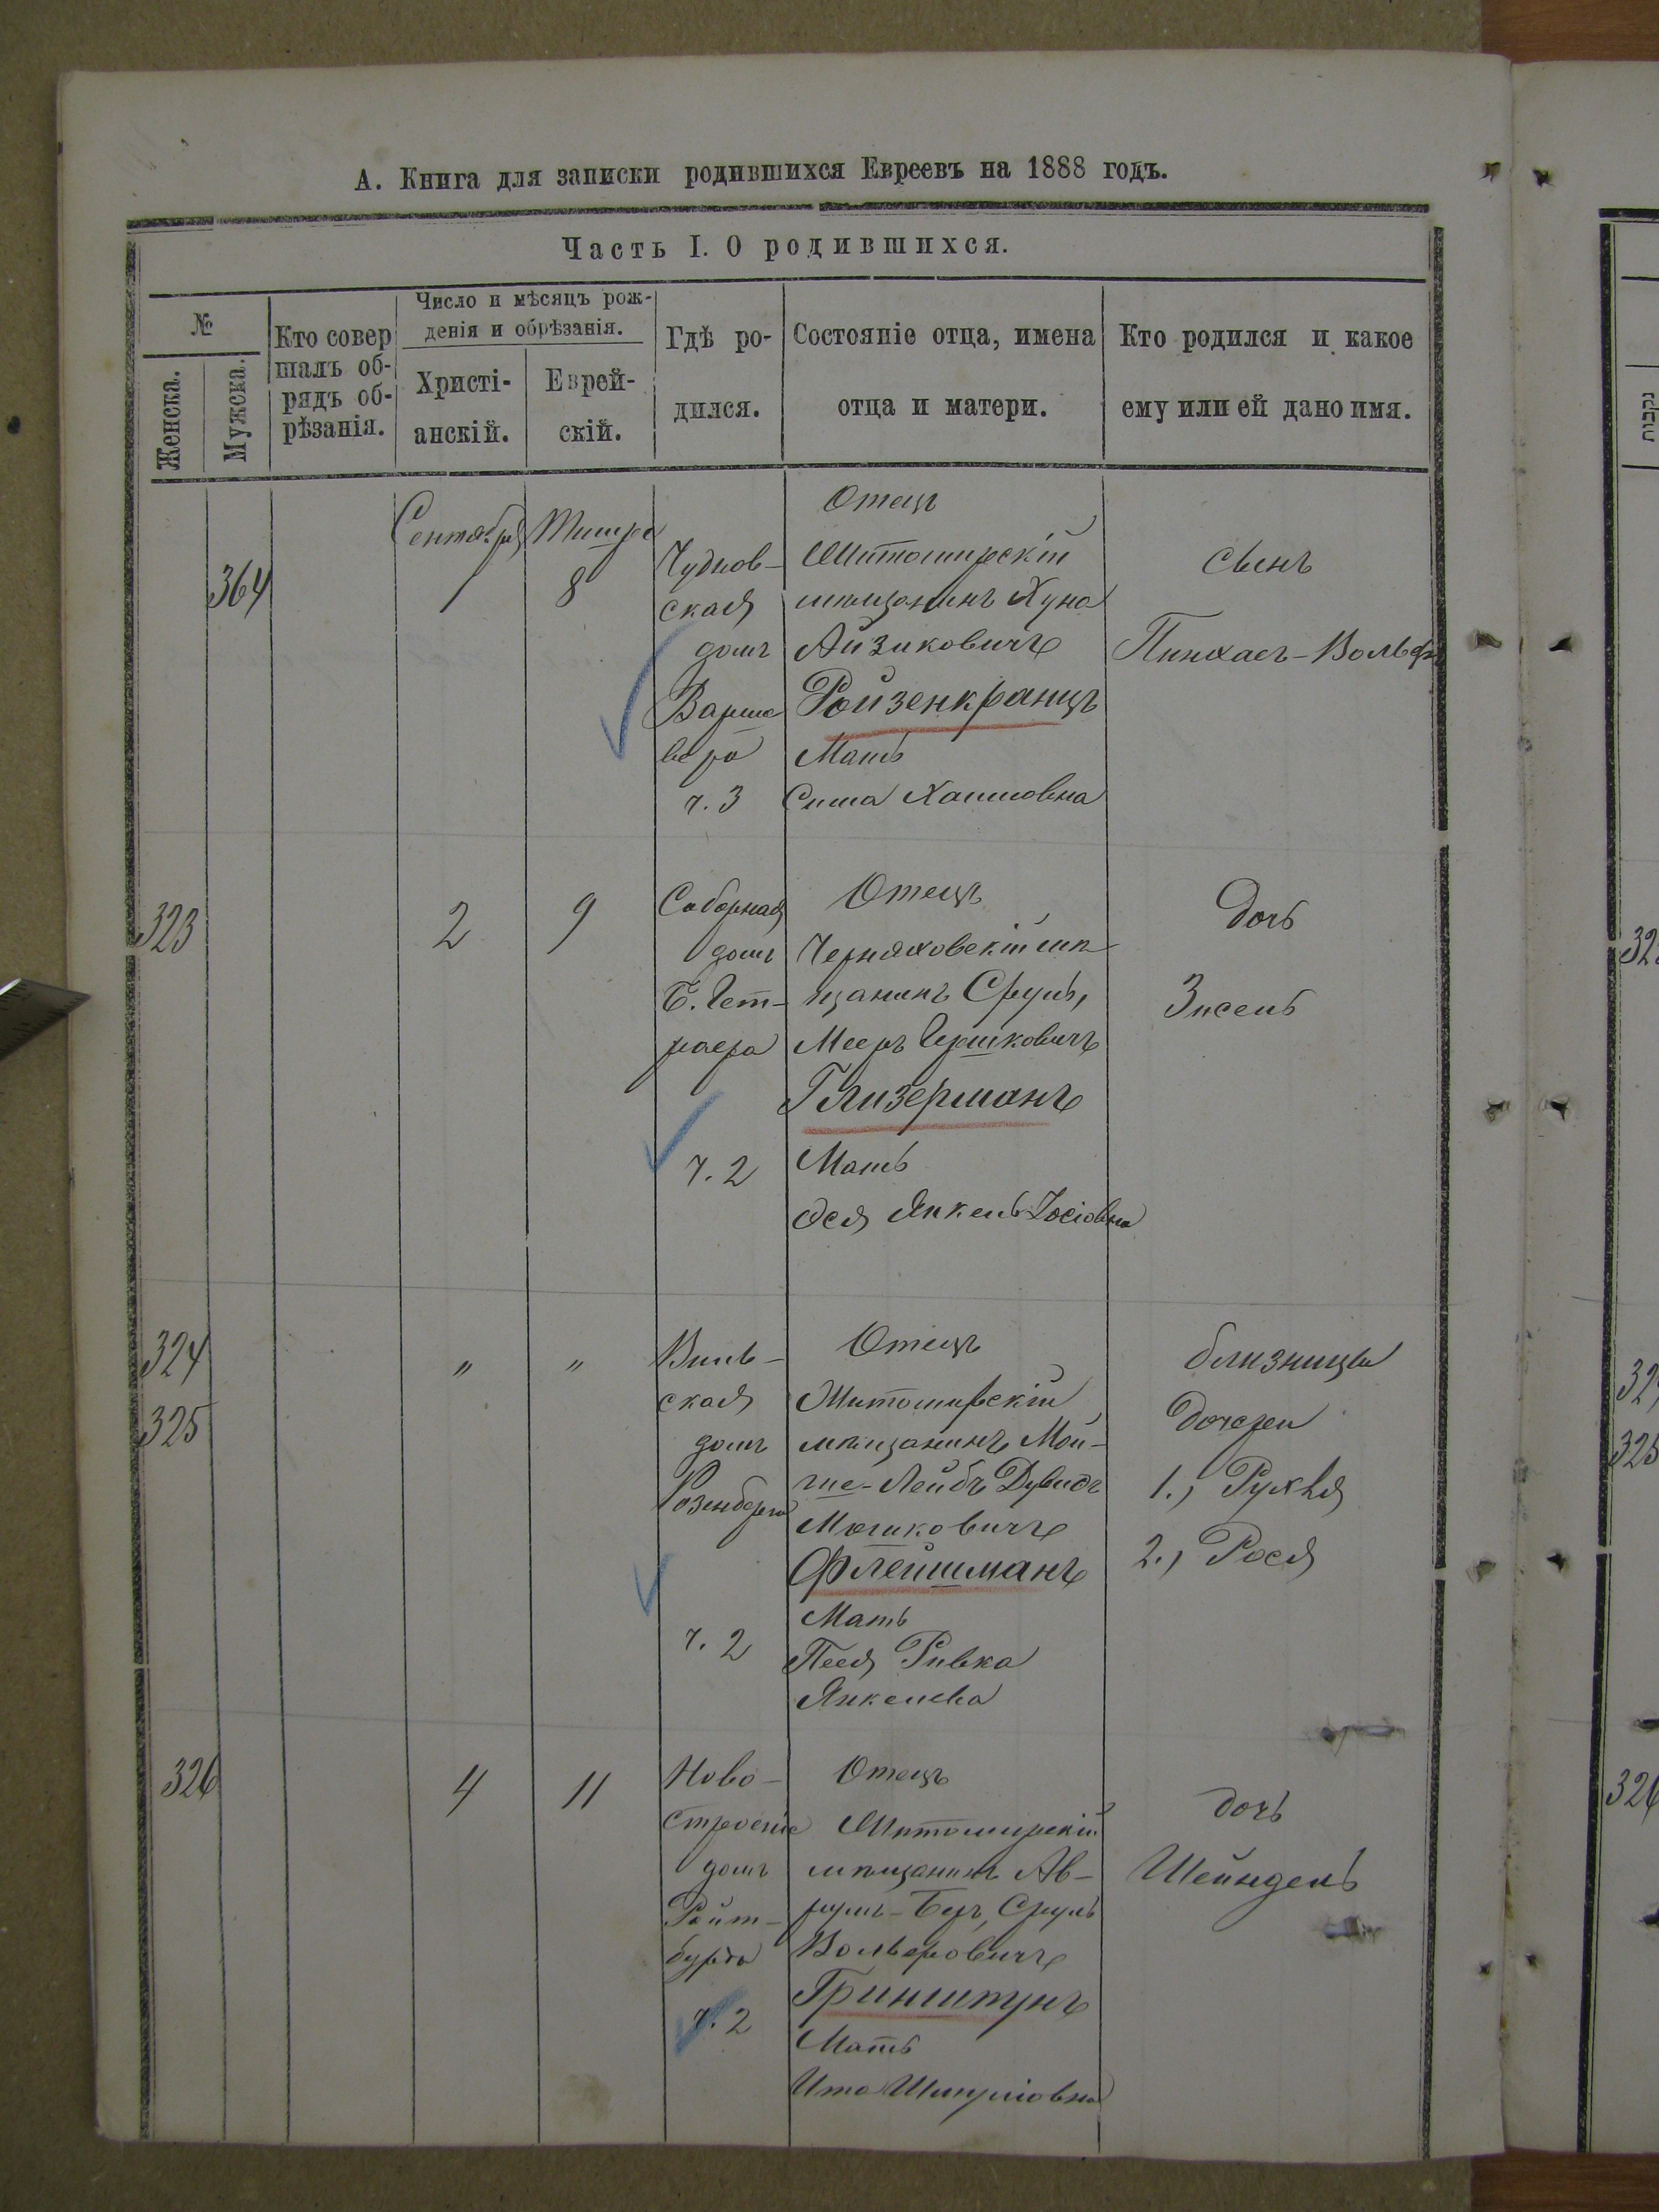 А. Книга для записки родившихся Евреевъ на 1888 годъ.
Часть I. О родившихся.
№
Женска.
Мужска.
Кто совер
шалъ об-
рядъ об-
рѣзанія.
Число и мѣсяцъ рож-
денія и обрѣзанія.
Христі-
анскій.
Еврей-
скій.
Гдѣ ро-
дился.
Состояніе отца, имена
отца и матери.
Кто родился и какое
ему или ей дано имя.
364
Сентября
1
Тишре
8
Чуднов-
ская
домъ
Варша
вера
ч. 3
Отецъ
Житомирскій
мѣщанинъ Хуна
Айзиковичъ
Ройзенкранцъ
Мать
Сима Хаимовна
сынъ
Пинхасъ-Вольфъ
323
2
9
Соборная
домъ
ч. 2
Отецъ
Черняховскій мѣ
щанинъ Сруль,
Мееръ Гершковичъ
Глизерманъ
Мать
Янкель Іосіовна
дочь
Зисель
324
325
"
"
Виль-
ская
домъ
Розенберга
ч. 2
Отецъ
Житомирскій
мѣщанинъ Мой-
ше-Лейбъ Дувидъ
Мошковичъ
Флейшманъ
Мать
Песя Ривка
Янкелева
близницы
дочери
1., Рухля
2., Рося
326
4
11
Ново-
строеніе
домъ
Ройт-
бурда
ч. 2
Отецъ
Житомирскій
мѣщанинъ Ав-
румъ-Беръ, Сруль
Вольфовичъ
Гринштунъ
Мать
Ита Шмуліовна
дочь
Шейндель
נקבות
32
325
326